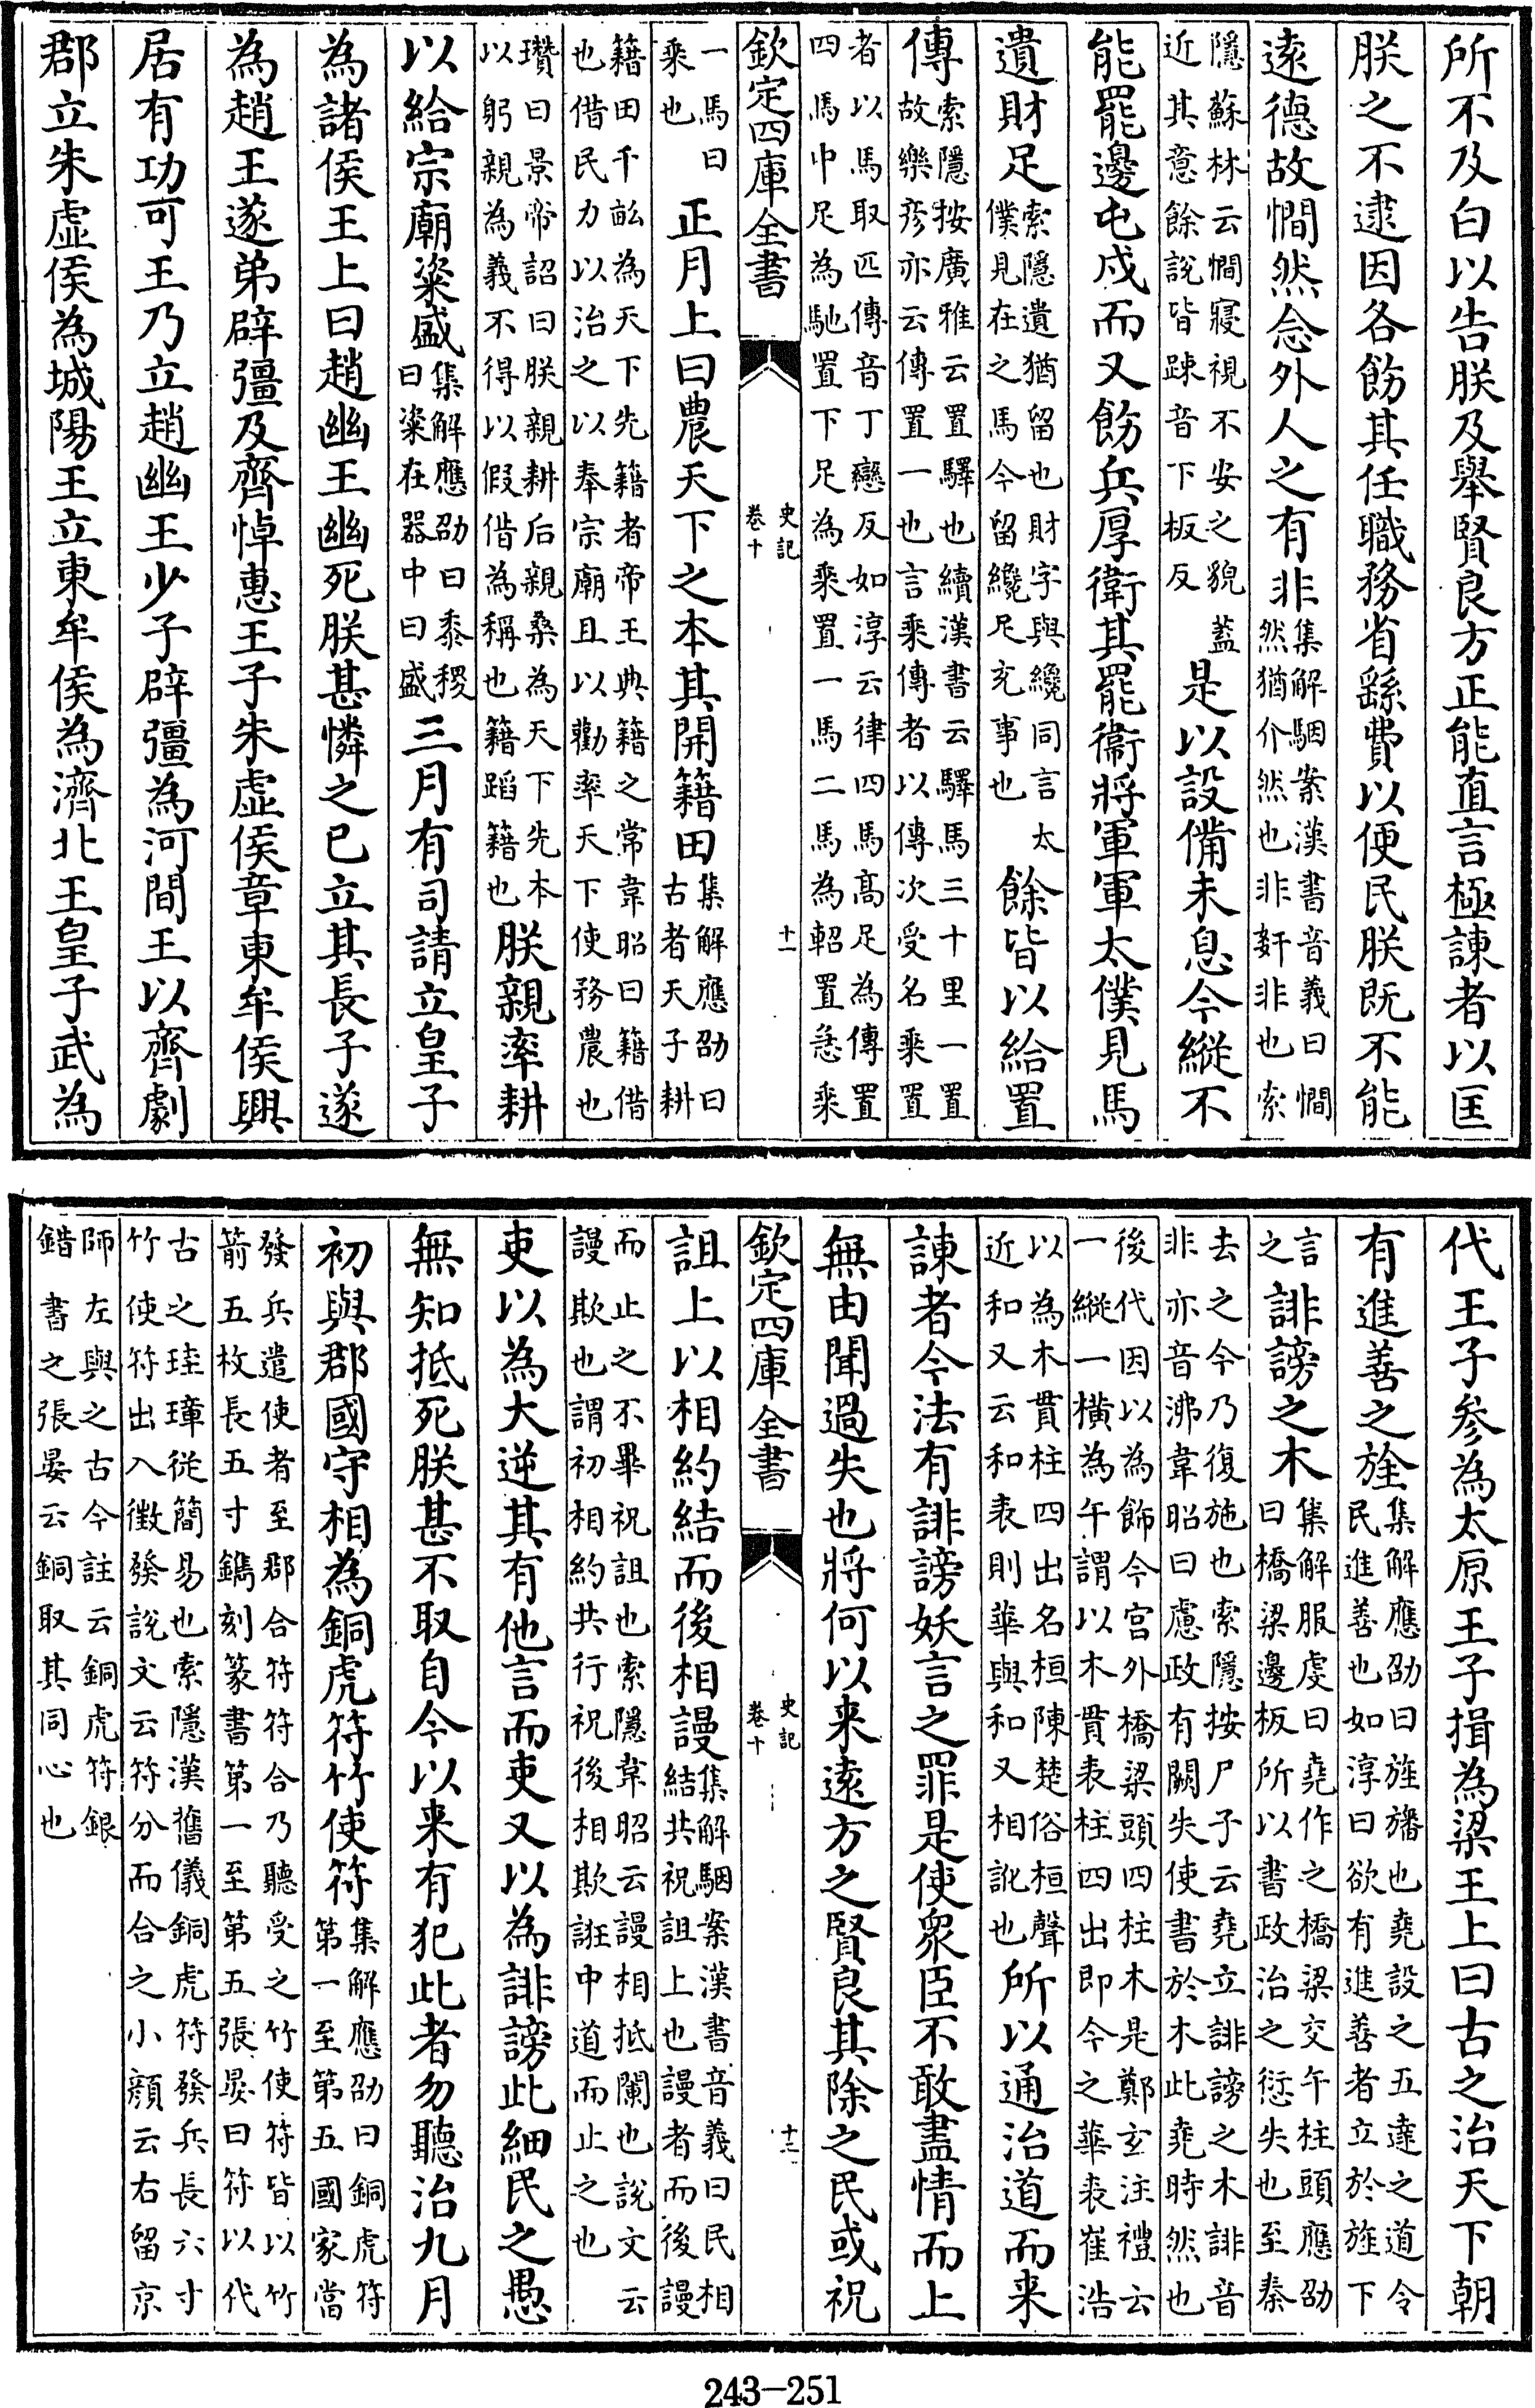 所不及白以告朕及舉賢良方正能直言極諫者以匡
朕之不逮因各飭其任職務省繇費以便民朕既不能
逺德故憪然念外人之有非集解駰案漢書音義曰憪然猶介然也非姧非也索
隱蘇林云憪寢視不安之貌蓋近其意餘說皆踈音下板反是以設備未息今縱不
能罷邊屯戍而又飭兵厚衛其罷衞將軍軍太僕見馬
遺財足索隱遺猶留也財字與纔同言太僕見在之馬今留纔足充事也餘皆以給置
傳索隱按廣雅云置驛也續漢書云驛馬三十里一置故樂彦亦云傳置一也言乗傳者以傳次受名乗置
者以馬取匹傳音丁戀反如淳云律四馬髙足為傳置四馬中足為馳置下足為乗置一馬二馬為軺置急乗
欽定四庫全書
史記
卷十
十一
一馬曰乗也正月上曰農天下之本其開籍田集解應劭曰古者天子耕
籍田千畝為天下先籍者帝王典籍之常韋昭曰籍借也借民力以治之以奉宗廟且以勸率天下使務農也
瓚曰景帝詔曰朕親耕后親桑為天下先本以躬親為義不得以假借為稱也籍蹈籍也朕親率耕
以給宗廟粢盛集解應劭曰黍稷曰粢在器中曰盛三月有司請立皇子
為諸侯王上曰趙幽王幽死朕甚憐之已立其長子遂
為趙王遂弟辟彊及齊悼惠王子朱虛侯章東牟侯興
居有功可王乃立趙幽王少子辟彊為河間王以齊劇
郡立朱虛侯為城陽王立東牟侯為濟北王皇子武為
代王子参為太原王子揖為梁王上曰古之治天下朝
有進善之旌集解應劭曰旌旛也堯設之五達之道令民進善也如淳曰欲有進善者立於旌下
言之誹謗之木集解服虔曰堯作之橋梁交午柱頭應劭曰橋梁邊板所以書政治之愆失也至秦
去之今乃復施也索隱按尸子云堯立誹謗之木誹音非亦音沸韋昭曰慮政有闕失使書於木此堯時然也
後代因以為飾今宫外橋梁頭四柱木是鄭玄注禮云一縱一橫為午謂以木貫表柱四出即今之華表崔浩
以為木貫柱四出名桓陳楚俗桓聲近和又云和表則華與和又相訛也所以通治道而来
諫者今法有誹謗妖言之罪是使衆臣不敢盡情而上
無由聞過失也將何以来逺方之賢良其除之民或祝
欽定四庫全書
史記
卷十
詛上以相約結而後相謾集解駰案漢書音義曰民相結共祝詛上也謾者而後謾
而止之不畢祝詛也索隱韋昭云謾相抵闌也說文云謾欺也謂初相約共行祝後相欺誑中道而止之也
吏以為大逆其有他言而吏又以為誹謗此細民之愚
無知抵死朕甚不取自今以来有犯此者勿聽治九月
初與郡國守相為銅虎符竹使符集解應劭曰銅虎符第一至第五國家當
發兵遣使者至郡合符符合乃聽受之竹使符皆以竹箭五枚長五寸鐫刻篆書第一至第五張晏曰符以代
古之珪璋從簡易也索隱漢舊儀銅虎符發兵長六寸竹使符出入徵發說文云符分而合之小顏云右留京
師左與之古今註云銅虎符銀錯書之張晏云銅取其同心也
243-251